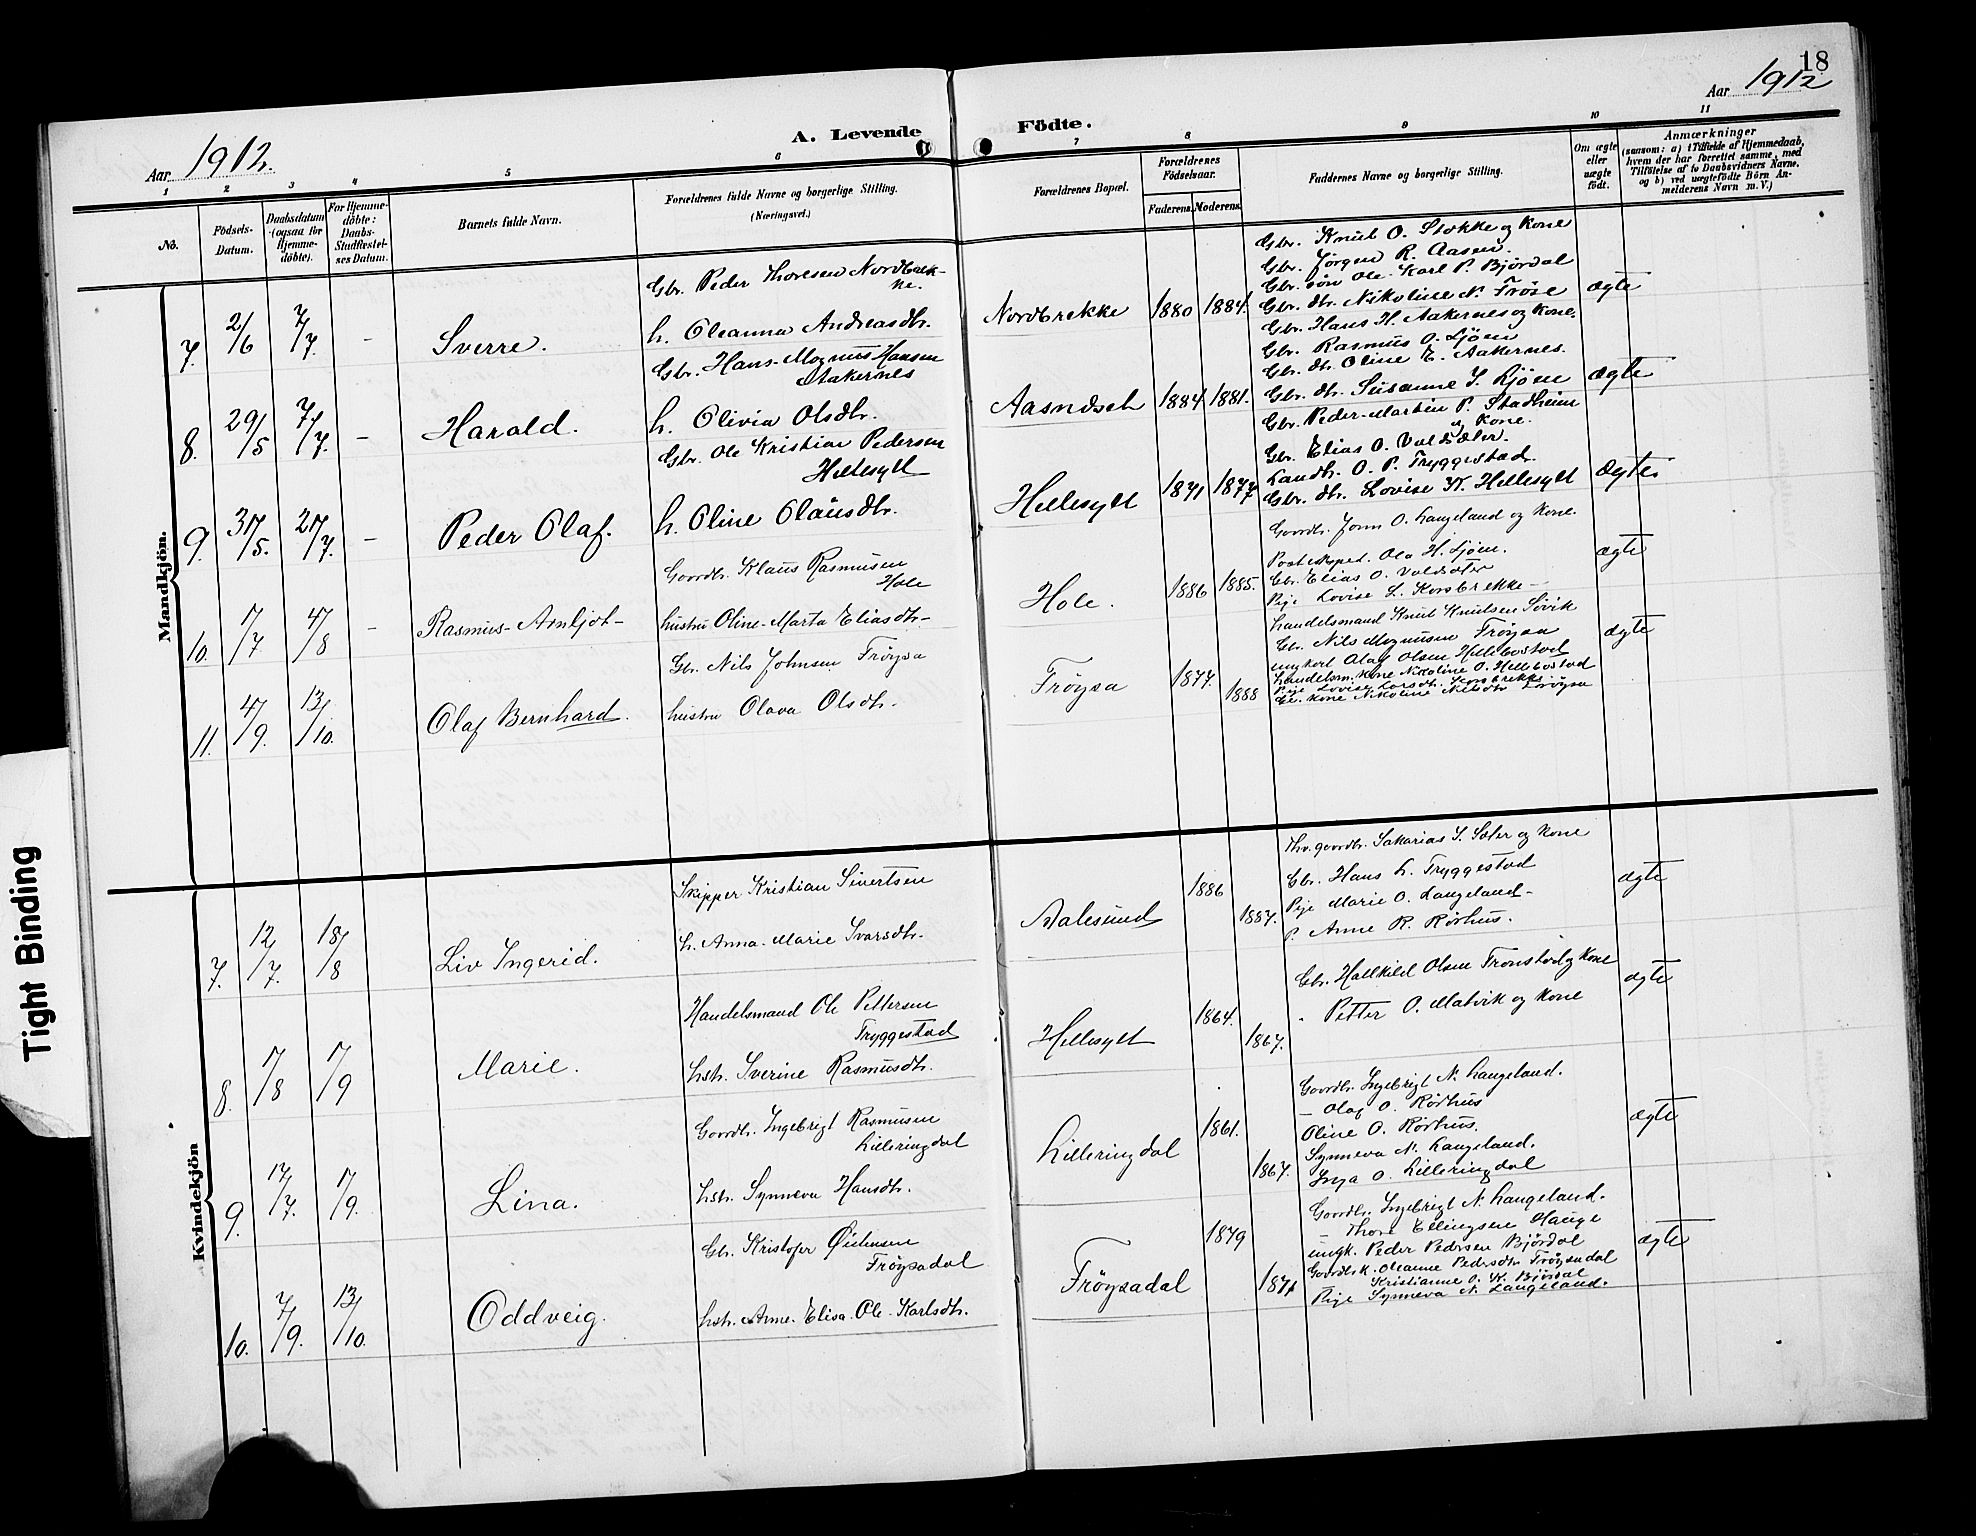 18
Aar 1912.
A. Levende Födte.
Aar 1912
1 2 3 4 5 6 7 8 9 10 11
No.
Födsels-
Datum.
Daabsdatum
(ogsaa for
Hjemme-
döbte).
For Hjemme-
döbte:
Daabs-
Stadfæstel-
ses Datum.
Barnets fulde Navn.
Forældrenes fulde Navne og borgerlige Stilling.
(Næringsvei.)
Forældrenes Bopæl.
Forældrenes
Födselsaar.
Faderens. Moderens.
Faddernes Navne og borgerlige Stilling.
Om ægte
eller
uægte
födt.
Anmærkninger
(saasom: a) i Tilfælde af Hjemmedaab,
hvem der har forrettet samme, med
Tilföielse af to Daabsvidners Navne,
og b) ved uægtefödte Börn An-
melderens Navn m. V.)
Mandkjön.
7. 2/6 7/7. - Sverre.
Gbr. Peder Thoresen Nordbrek-
ke.
h. Oleanna Andreasdtr.
Nordbrekke 1880 1884.
Gbr. Knut O. Stokke og Kone
Gbr. Jørgen R. Aasen.
Gbr. søn Ole-Karl P. Bjørdal
Gbr. dtr. Nikoline N. Frøse
ægte
8. 29/5 7/7. - Harald.
Gbr. Hans-Magnus Hansen
Aakernes
h. Olivia Olsdtr.
1884 1881.
Gbr. Hans H. Aakernes og Kone.
Gbr. Rasmus O. Ljøen
Gbr. dtr. Oline E. Aakernes.
Gbr. dtr. Susanne I. Ljøen
ægte
9. 31/5. 21/7. - Peder Olaf.
Gbr. Ole Kristian Pedersen
Hellesylt
h. Oline Olausdtr.
Hellesylt 1871 1877
Gbr. Peder-Martin P. Stadheim
og Kone.
Gbr. Elias O. Valdsæter.
Landh. O. P. Tryggestad.
Gbr. dtr. Lovise K. Hellesylt
ægte
10. 1/7 4/8 - Rasmus-Arnljot-
Gaardbr. Klaus Rasmusen
Hole
hustru Oline-Marta Eliasdtr-
Hole. 1886 1885.
Gaardbr. Jonn O. Langeland og Kone.
Postexped. Ole H. Ljøen.
Gbr. Elias O. Valdsæter
Pige Lovise L. Korsbrekke-
ægte
11. 4/9. 13/10. Olaf Bernhard.
Gbr. Nils Johnsen Frøysa
hustru Olava Olsdtr.
Frøysa 1877. 1888
Handelsmand Knut Knutsen Søvik
Gbr. Nils Magnusen Frøysa
ungkarl Olaf Olsen Hellebostad
Handelsm. Kone Nikoline O. Hellebostad
Pige Lovise Larsdtr. Korsbrekke
Gb. Kone Nikoline Nilsdtr Frøysa
ægte
Kvindekjön
7. 12/7. 18/8 Liv Ingerid.
Skipper Kristian Sivertsen
h. Anna-Marie Ivarsdtr.
Aalesund 1886 1887.
Thv. gaardbr. Sakarias I. Sæter og Kone
Gbr. Hans L. Tryggestad
Pige Marie O. Langeland-
P. Anne R. Rørhus.
ægte
8. 1/8 1/9 Marie.
Handelsmand Ole Pettersen
Tryggestad
hstr. Sverine Rasmusdtr.
Hellesylt 1864. 1867.
Gbr. Hallkild Olsen Tronstad og Kone
" Petter O. Matvik og Kone
ægte
9. 17/7. 1/9. Lina.
Gaardbr. Ingebrigt Rasmusen
Lilleringdal
hstr. Synneva Hansdtr.
Lilleringdal 1861. 1867.
Gaardbr. Ingebrigt N. Langeland.
- Olag O. Rørhus
Oline O. Rørhus.
Synneva N. Langeland.
Inga O. Lilleringdal
ægte
10. 7/9. 13/10. Oddveig.
Gbr. Kristofer Øiensen
Frøysadal
hstr. Anne-Elisa Ole-Karlsdtr.
Frøysadal 1879 1871
Gaardbr. Ingebrigt N. Langeland.
- Thore Ellingsen Hauge
ungk. Peder Pedersen Bjørdal
Gaardbr.k. Oleanne Pedersdtr Frøysadal
Kristianne O. K. Bjørdal
Pige Synneva N. Langeland.
ægte
Tight Binding